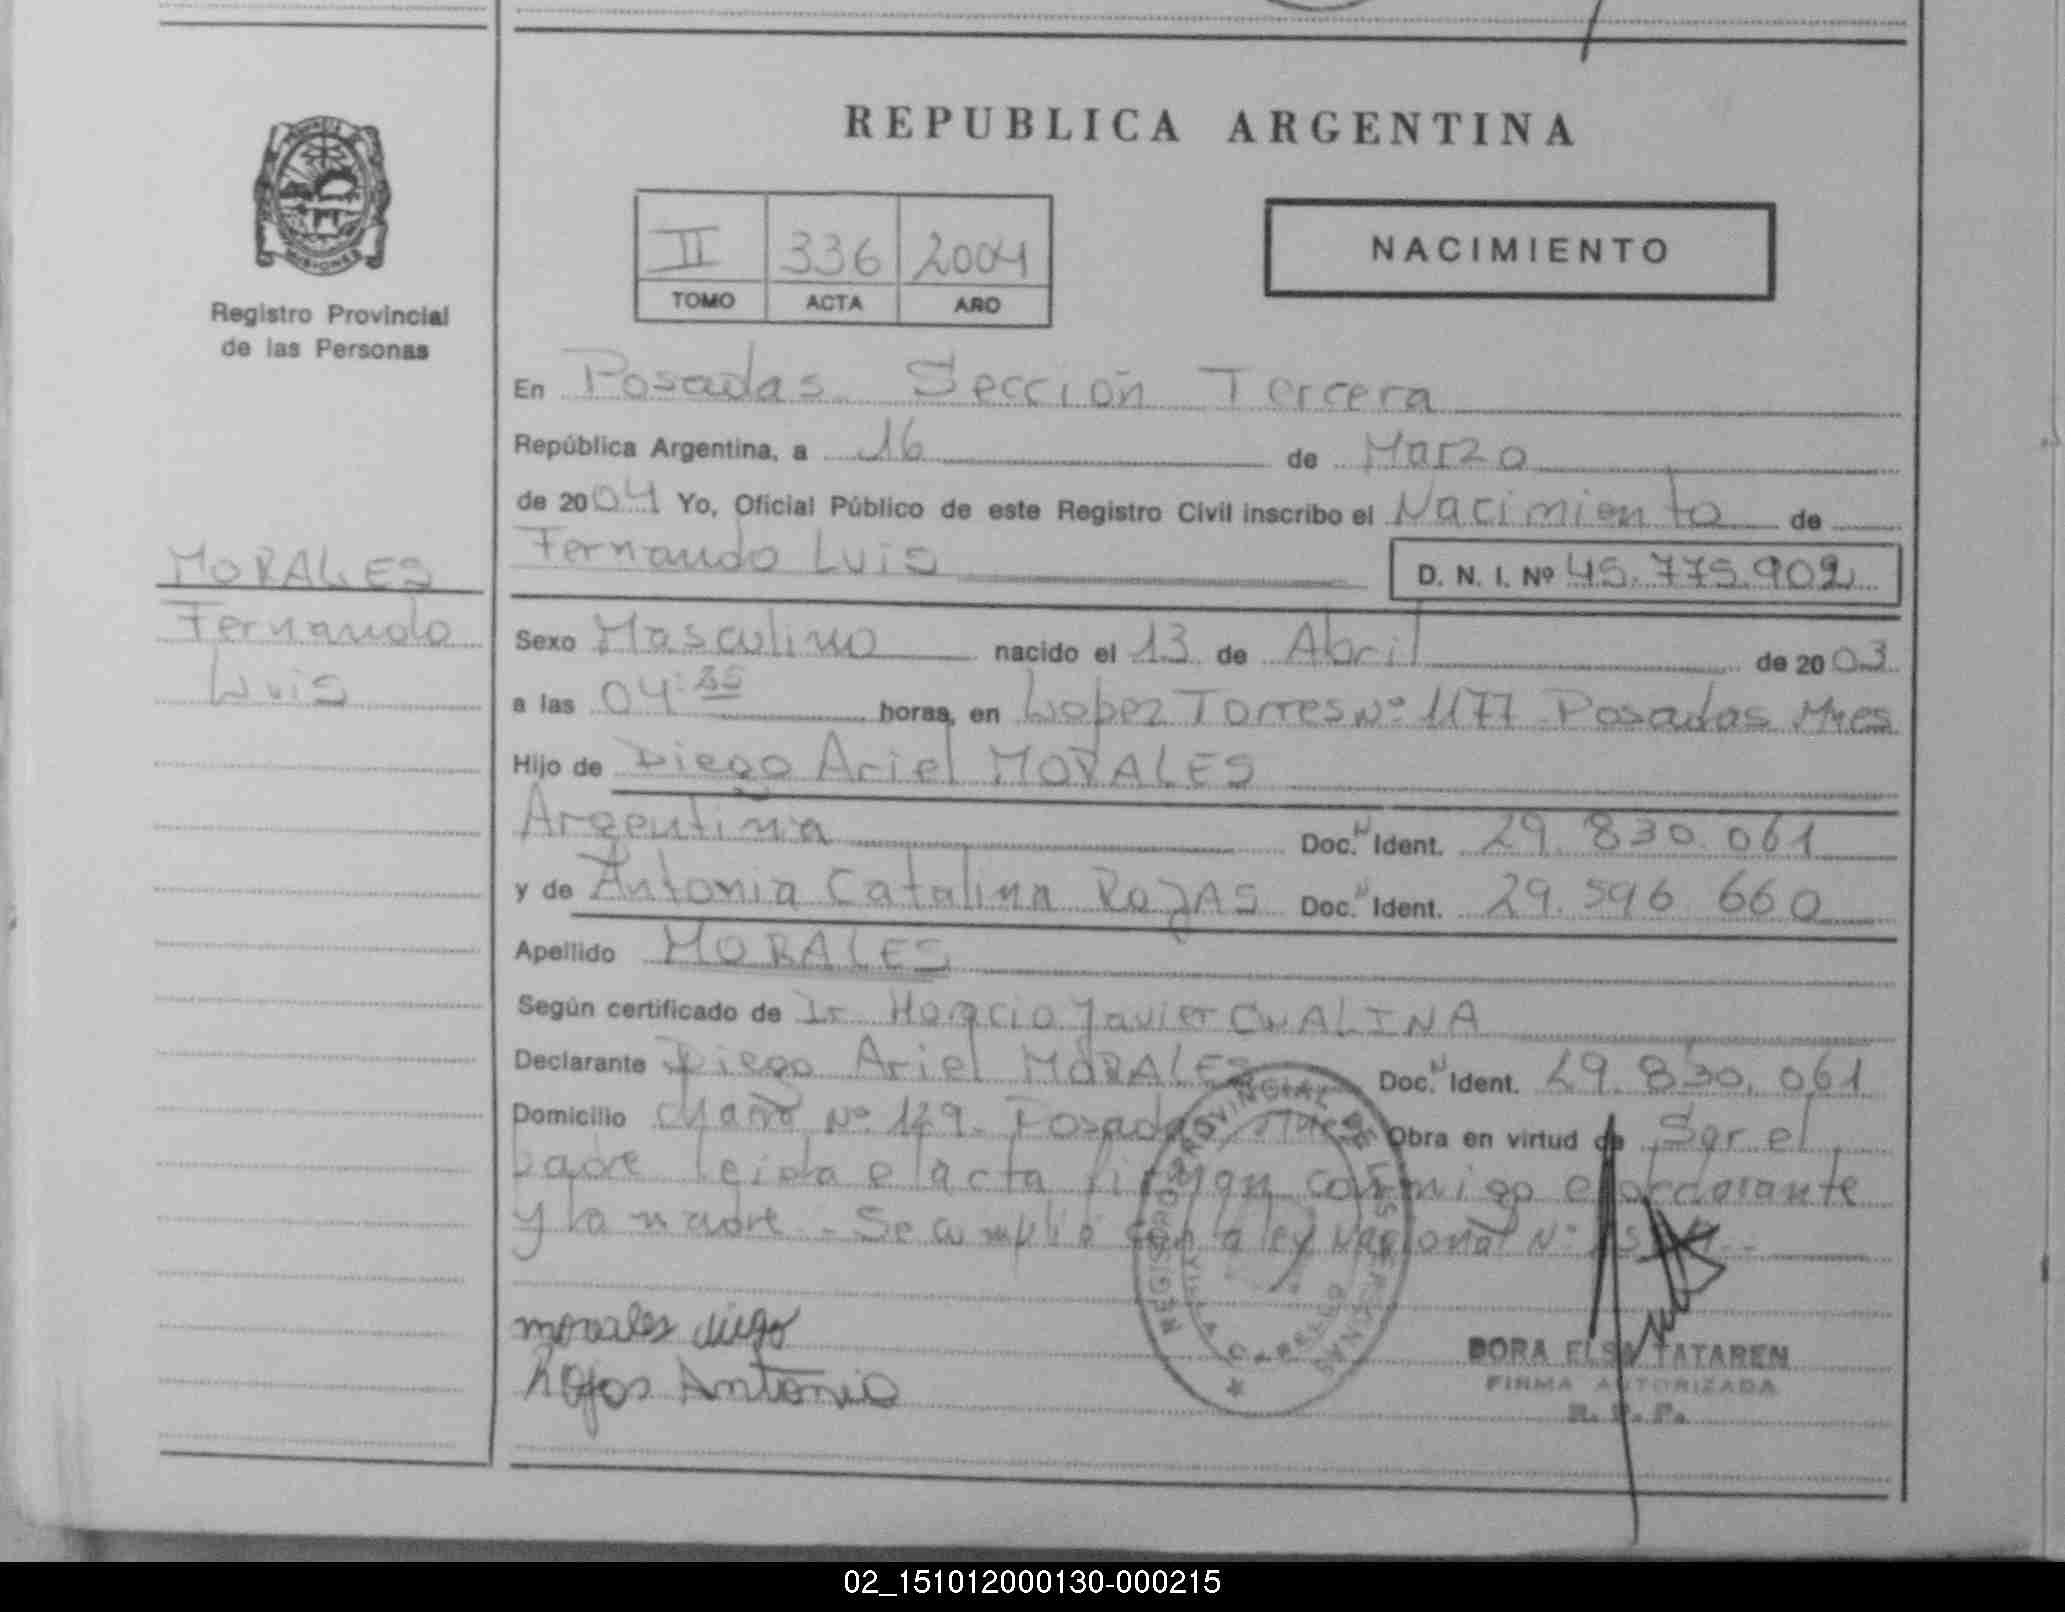 REPUBLICA ARGENTINA
MISIONES
Registro Provincial
de las Personas
II 336 2004
TOMO ACTA AÑO
NACIMIENTO
En Posadas Sección Tercera
República Argentina, a 16 de Marzo
de 2004 Yo, Oficial Público de este Registro Civil inscribo el Nacimiento de
Fernando Luis D. N. I. Nº 45.775.902
MORALES
Fernando
Luis
Sexo Masculino nacido el 13 de Abril de 2003
a las 04:35 horas, en Lopez Torres Nº 1177 Posadas Mnes
Hijo de Diego Ariel MORALES
Argentina Doc. N Ident. 29.830.061
y de Antonia Catalina ROJAS Doc. N Ident. 29.596.660
Apellido MORALES
Según certificado de Dr. Horacio Javier CWALINA
Declarante Diego Ariel MORALES Doc. N Ident. 29.830.061
Domicilio Nº 129 - Posadas Obra en virtud de Ser el
padre leida el acta firman conmigo el declarante
y la madre - Se cumplió con la ley Nacional Nº
morales diego
Rojas Antonia
REGISTRO PROVINCIAL DE LAS PERSONAS
DORA ELSA TATAREN
FIRMA AUTORIZADA
R. P. P.
02_151012000130-000215